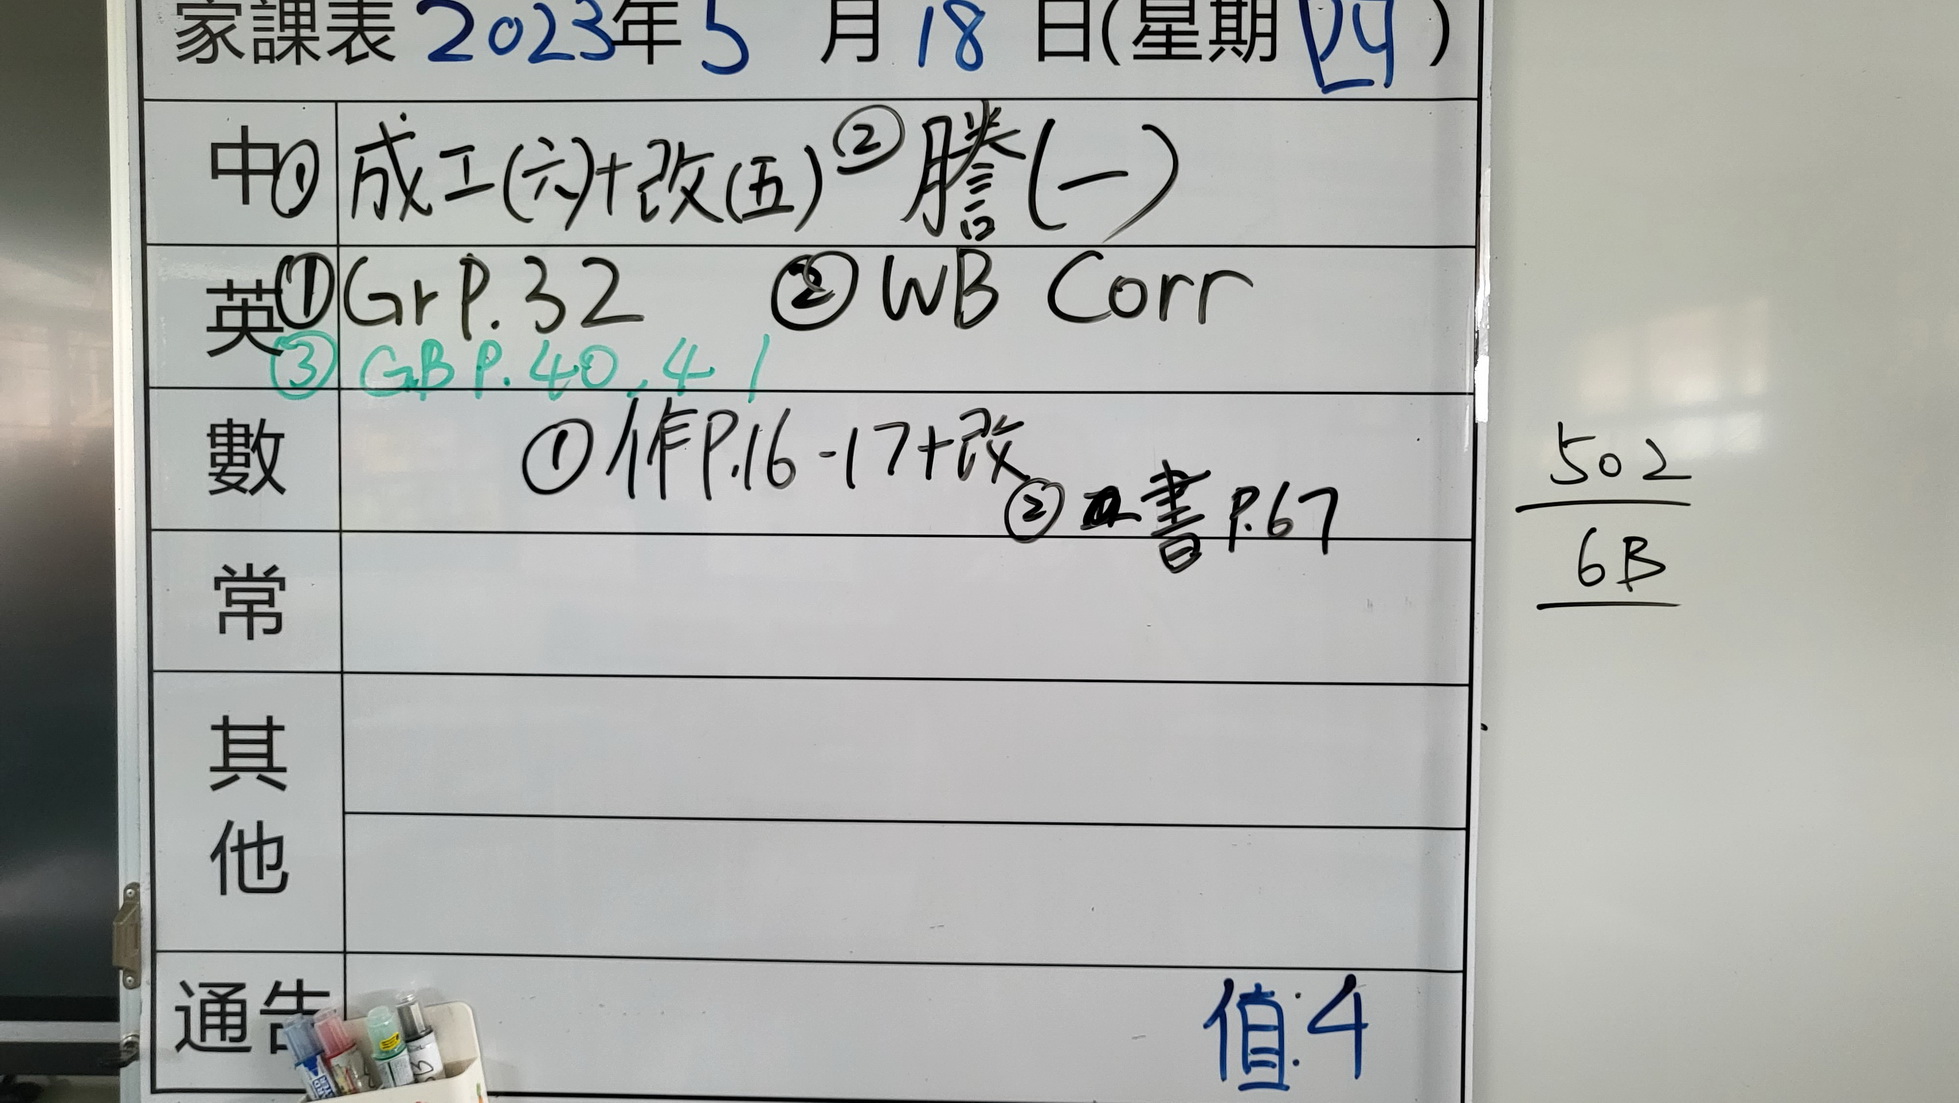 家課表 2023年5月18日(星期四)
中 ① 成工(六)+改(五) ② 謄(一)
英 ① Gr P.32 ② WB Corr
③ GB P.40,41
數 ① 作P.16-17+改
② 書 P.67
常
其他
通告 值:4
502
6B